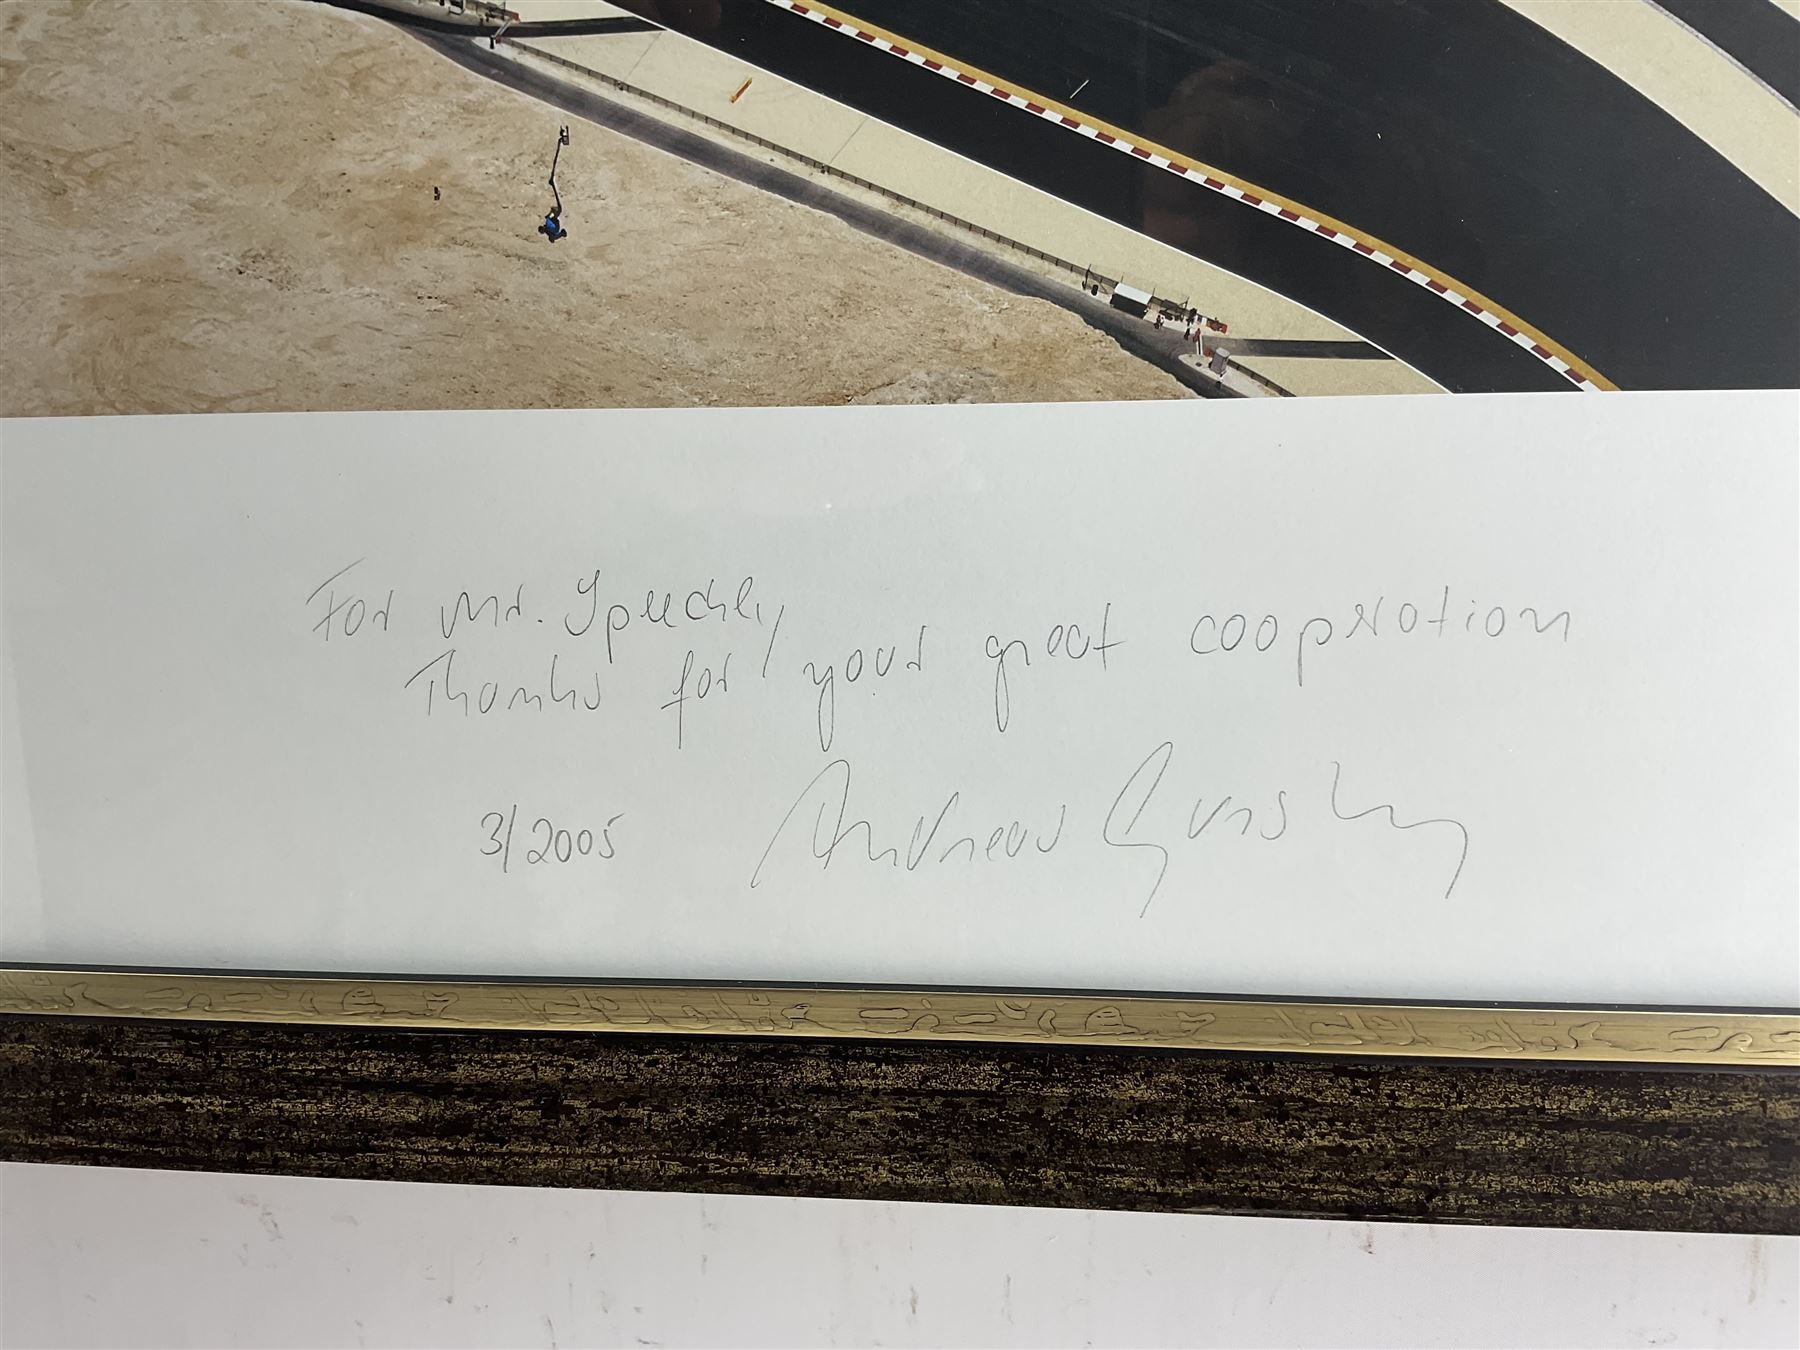 For Mr. Speechly,
Thanks for your great cooperation
3/2005 Andreas Gursky